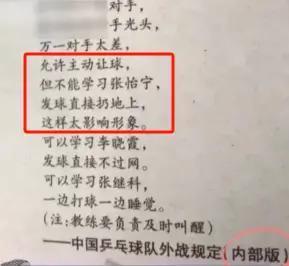 对手，
手光头，
万一对手太差，
允许主动让球，
但不能学习张怡宁，
发球直接扔地上，
这样太影响形象。
可以学习李晓霞，
发球直接不过网。
可以学习张继科，
一边打球一边睡觉。
(注:教练要负责及时叫醒)
——中国乒乓球队外战规定(内部版)